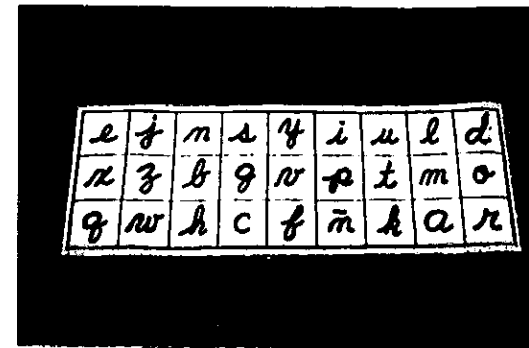 e j n s y i u l d
x z b g v p t m o
q w h c f ñ k a r